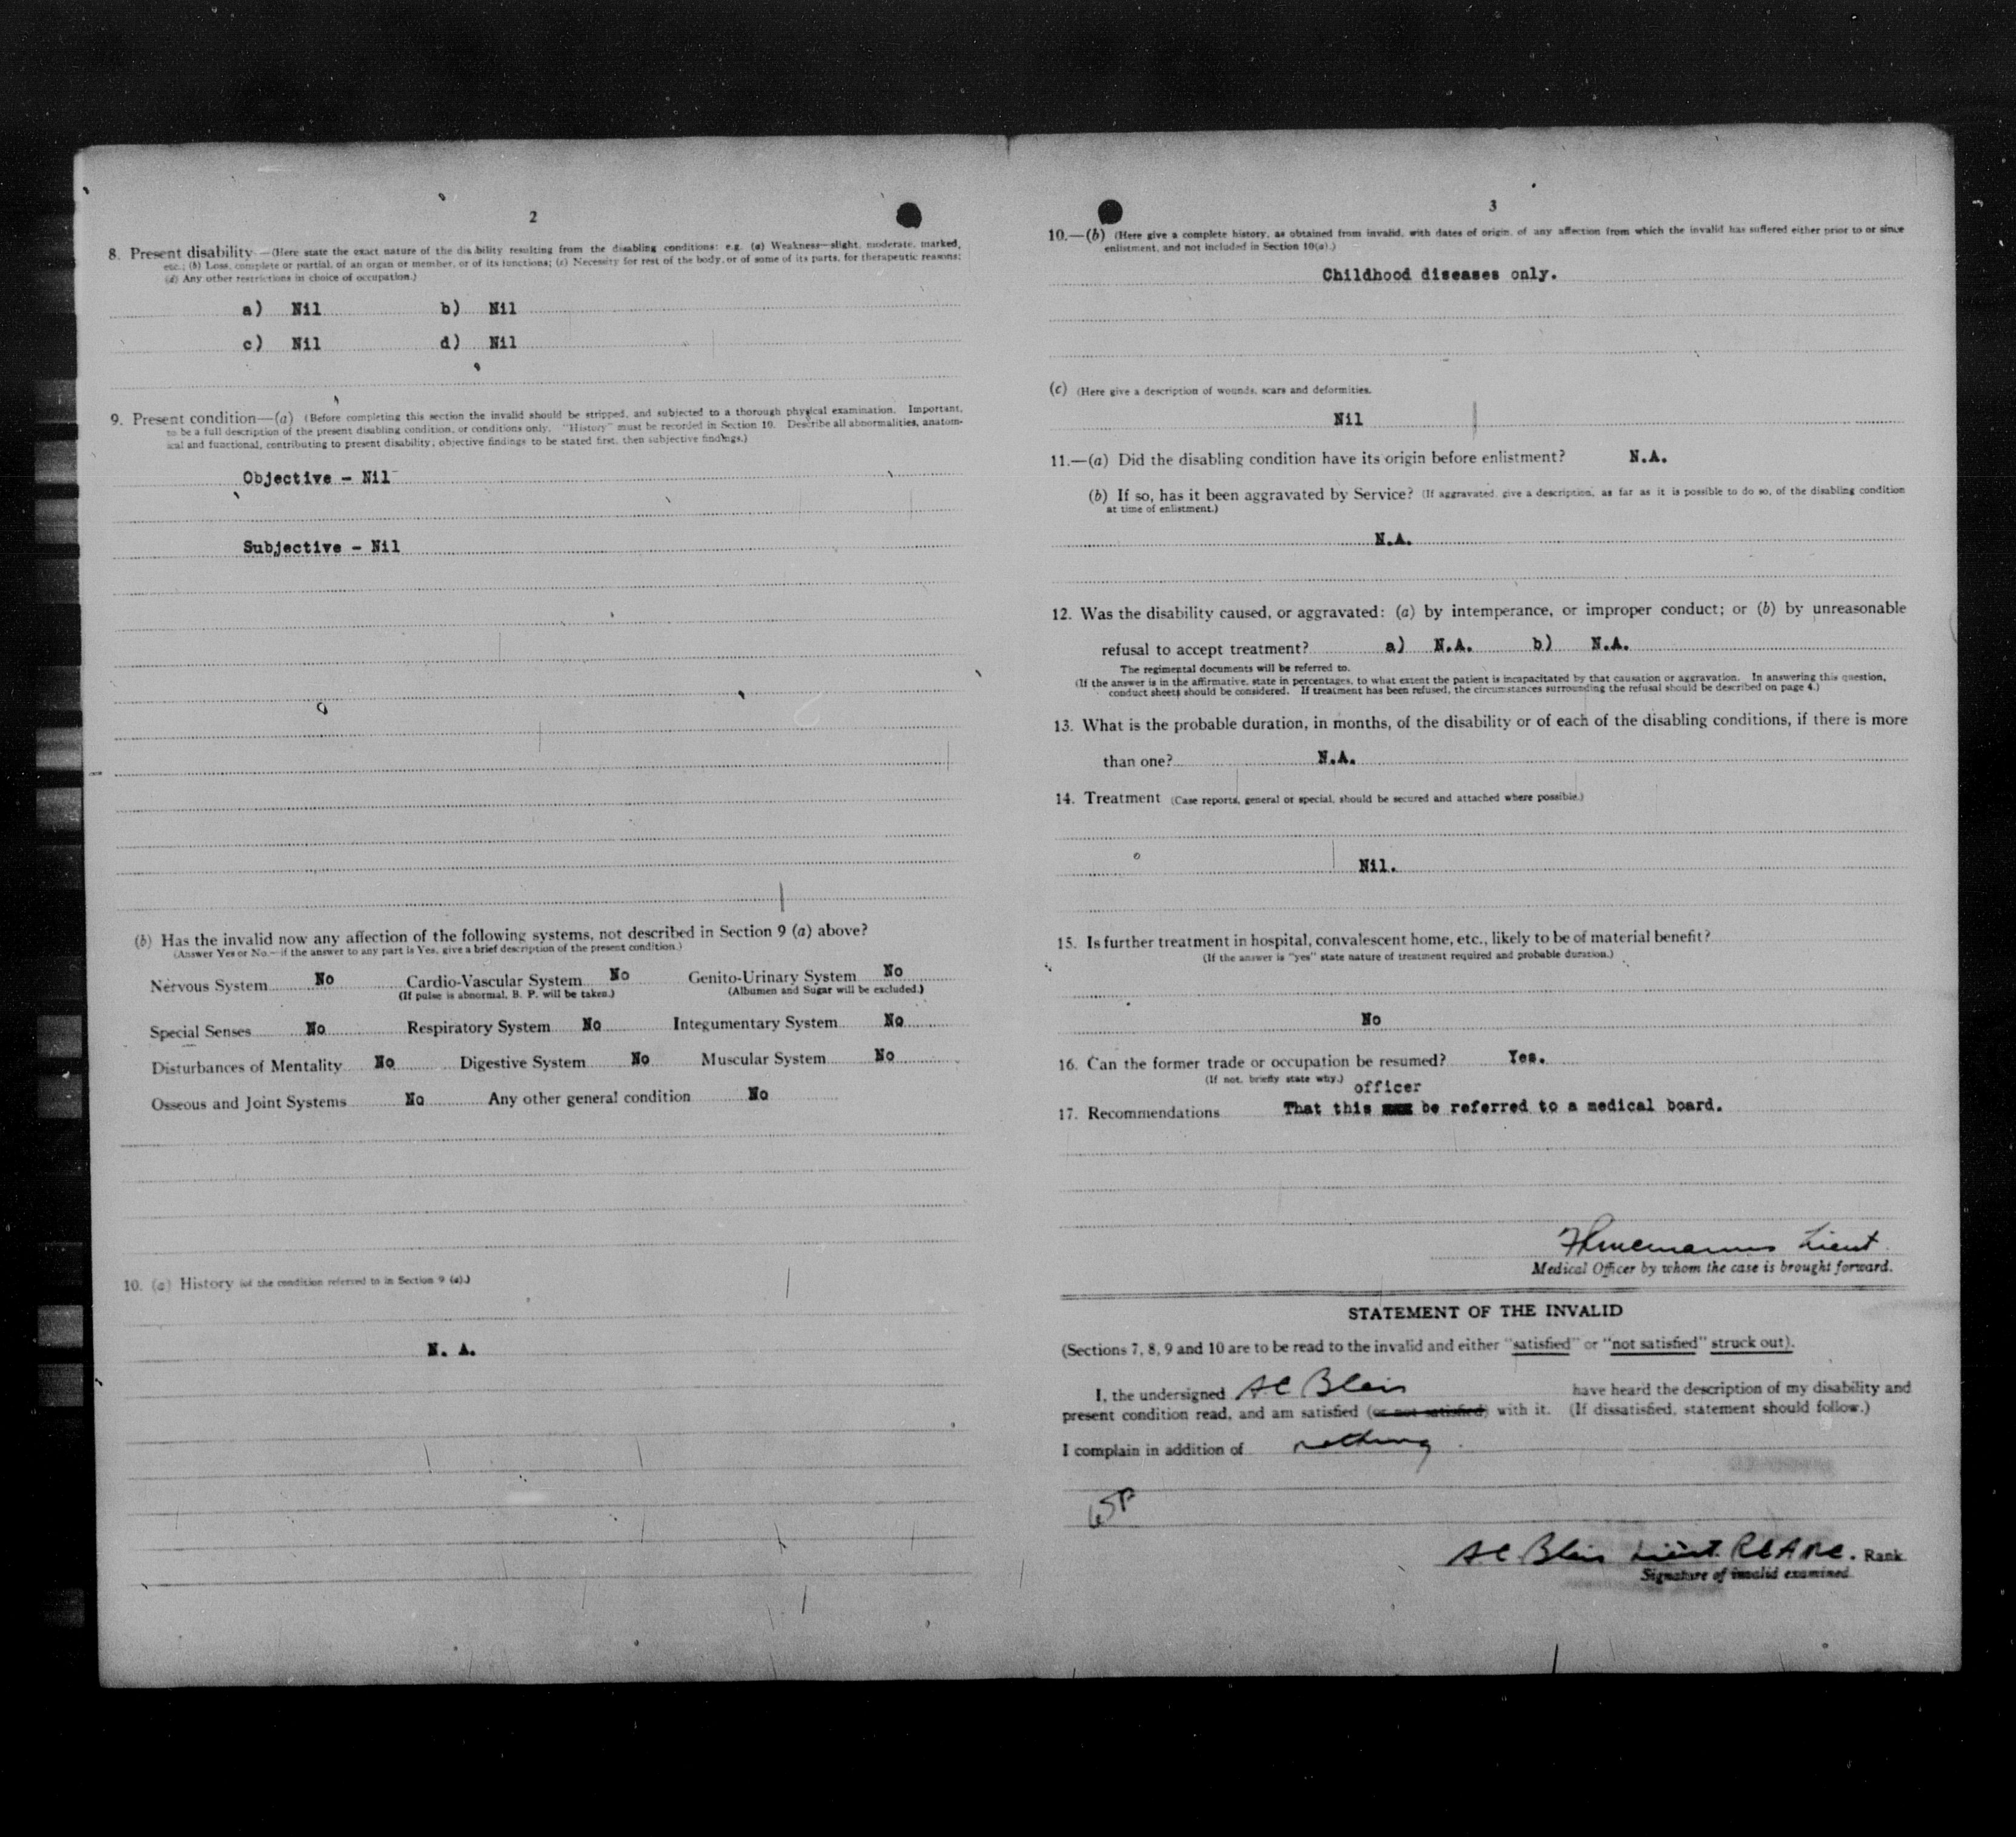 2
8. Present disability—(Here state the exact nature of the disability resulting from the disabling conditions: e.g. (a) Weakness—slight, moderate, marked,
etc.; (b) Loss, complete or partial, of an organ or member, or of its functions; (c) Necessity for rest of the body, or of some of its parts, for therapeutic reasons;
(d) Any other restrictions in choice of occupation.)
a) Nil b) Nil
c) Nil d) Nil
9. Present condition—(a) (Before completing this section the invalid should be stripped, and subjected to a thorough physical examination. Important,
to be a full description of the present disabling condition, or conditions only. "History" must be recorded in Section 10. Describe all abnormalities, anatom-
ical and functional, contributing to present disability; objective findings to be stated first, then subjective findings.)
Objective - Nil
Subjective - Nil
(b) Has the invalid now any affection of the following systems, not described in Section 9 (a) above?
(Answer Yes or No.—if the answer to any part is Yes, give a brief description of the present condition.)
Nervous System No Cardio-Vascular System No Genito-Urinary System No
(If pulse is abnormal, B. P. will be taken.) (Albumen and Sugar will be excluded.)
Special Senses No Respiratory System No Integumentary System No
Disturbances of Mentality No Digestive System No Muscular System No
Osseous and Joint Systems No Any other general condition No
10. (a) History (of the condition referred to in Section 9 (a).)
N. A.
3
10.—(b) (Here give a complete history, as obtained from invalid, with dates of origin, of any affection from which the invalid has suffered either prior to or since
enlistment, and not included in Section 10(a).)
Childhood diseases only.
(c) (Here give a description of wounds, scars and deformities.
Nil
11.—(a) Did the disabling condition have its origin before enlistment? N.A.
(b) If so, has it been aggravated by Service? (If aggravated, give a description, as far as it is possible to do so, of the disabling condition
at time of enlistment.)
N.A.
12. Was the disability caused, or aggravated: (a) by intemperance, or improper conduct; or (b) by unreasonable
refusal to accept treatment? a) N.A. b) N.A.
The regimental documents will be referred to.
(If the answer is in the affirmative, state in percentages, to what extent the patient is incapacitated by that causation or aggravation. In answering this question,
conduct sheets should be considered. If treatment has been refused, the circumstances surrounding the refusal should be described on page 4.)
13. What is the probable duration, in months, of the disability or of each of the disabling conditions, if there is more
than one? N.A.
14. Treatment (Case reports, general or special, should be secured and attached where possible.)
Nil.
15. Is further treatment in hospital, convalescent home, etc., likely to be of material benefit?
(If the answer is "yes" state nature of treatment required and probable duration.)
No
16. Can the former trade or occupation be resumed? Yes.
(If not, briefly state why.)
officer
17. Recommendations That this be referred to a medical board.
Lieut.
Medical Officer by whom the case is brought forward.
STATEMENT OF THE INVALID
(Sections 7, 8, 9 and 10 are to be read to the invalid and either "satisfied" or "not satisfied" struck out).
I, the undersigned AC Blair have heard the description of my disability and
present condition read, and am satisfied (or not satisfied) with it. (If dissatisfied, statement should follow.)
I complain in addition of nothing.
AC Blair Lieut. RCAMC. Rank
Signature of invalid examined